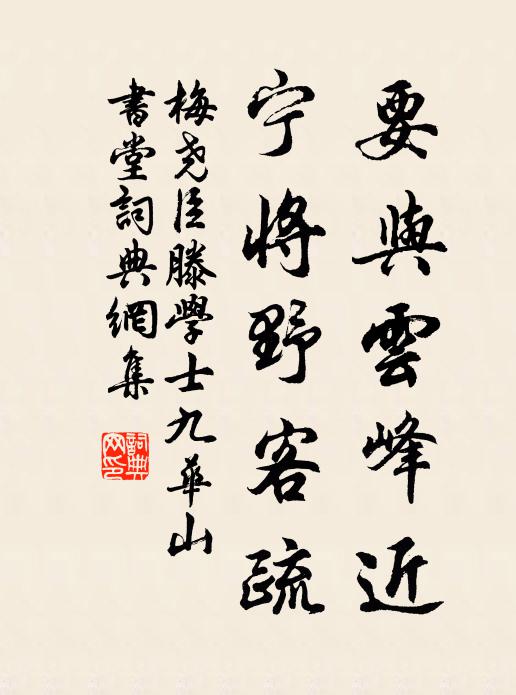 要與雲峰近
宁將野客疏
梅尧臣滕學士九華山
書堂詞典網集
詞典网印